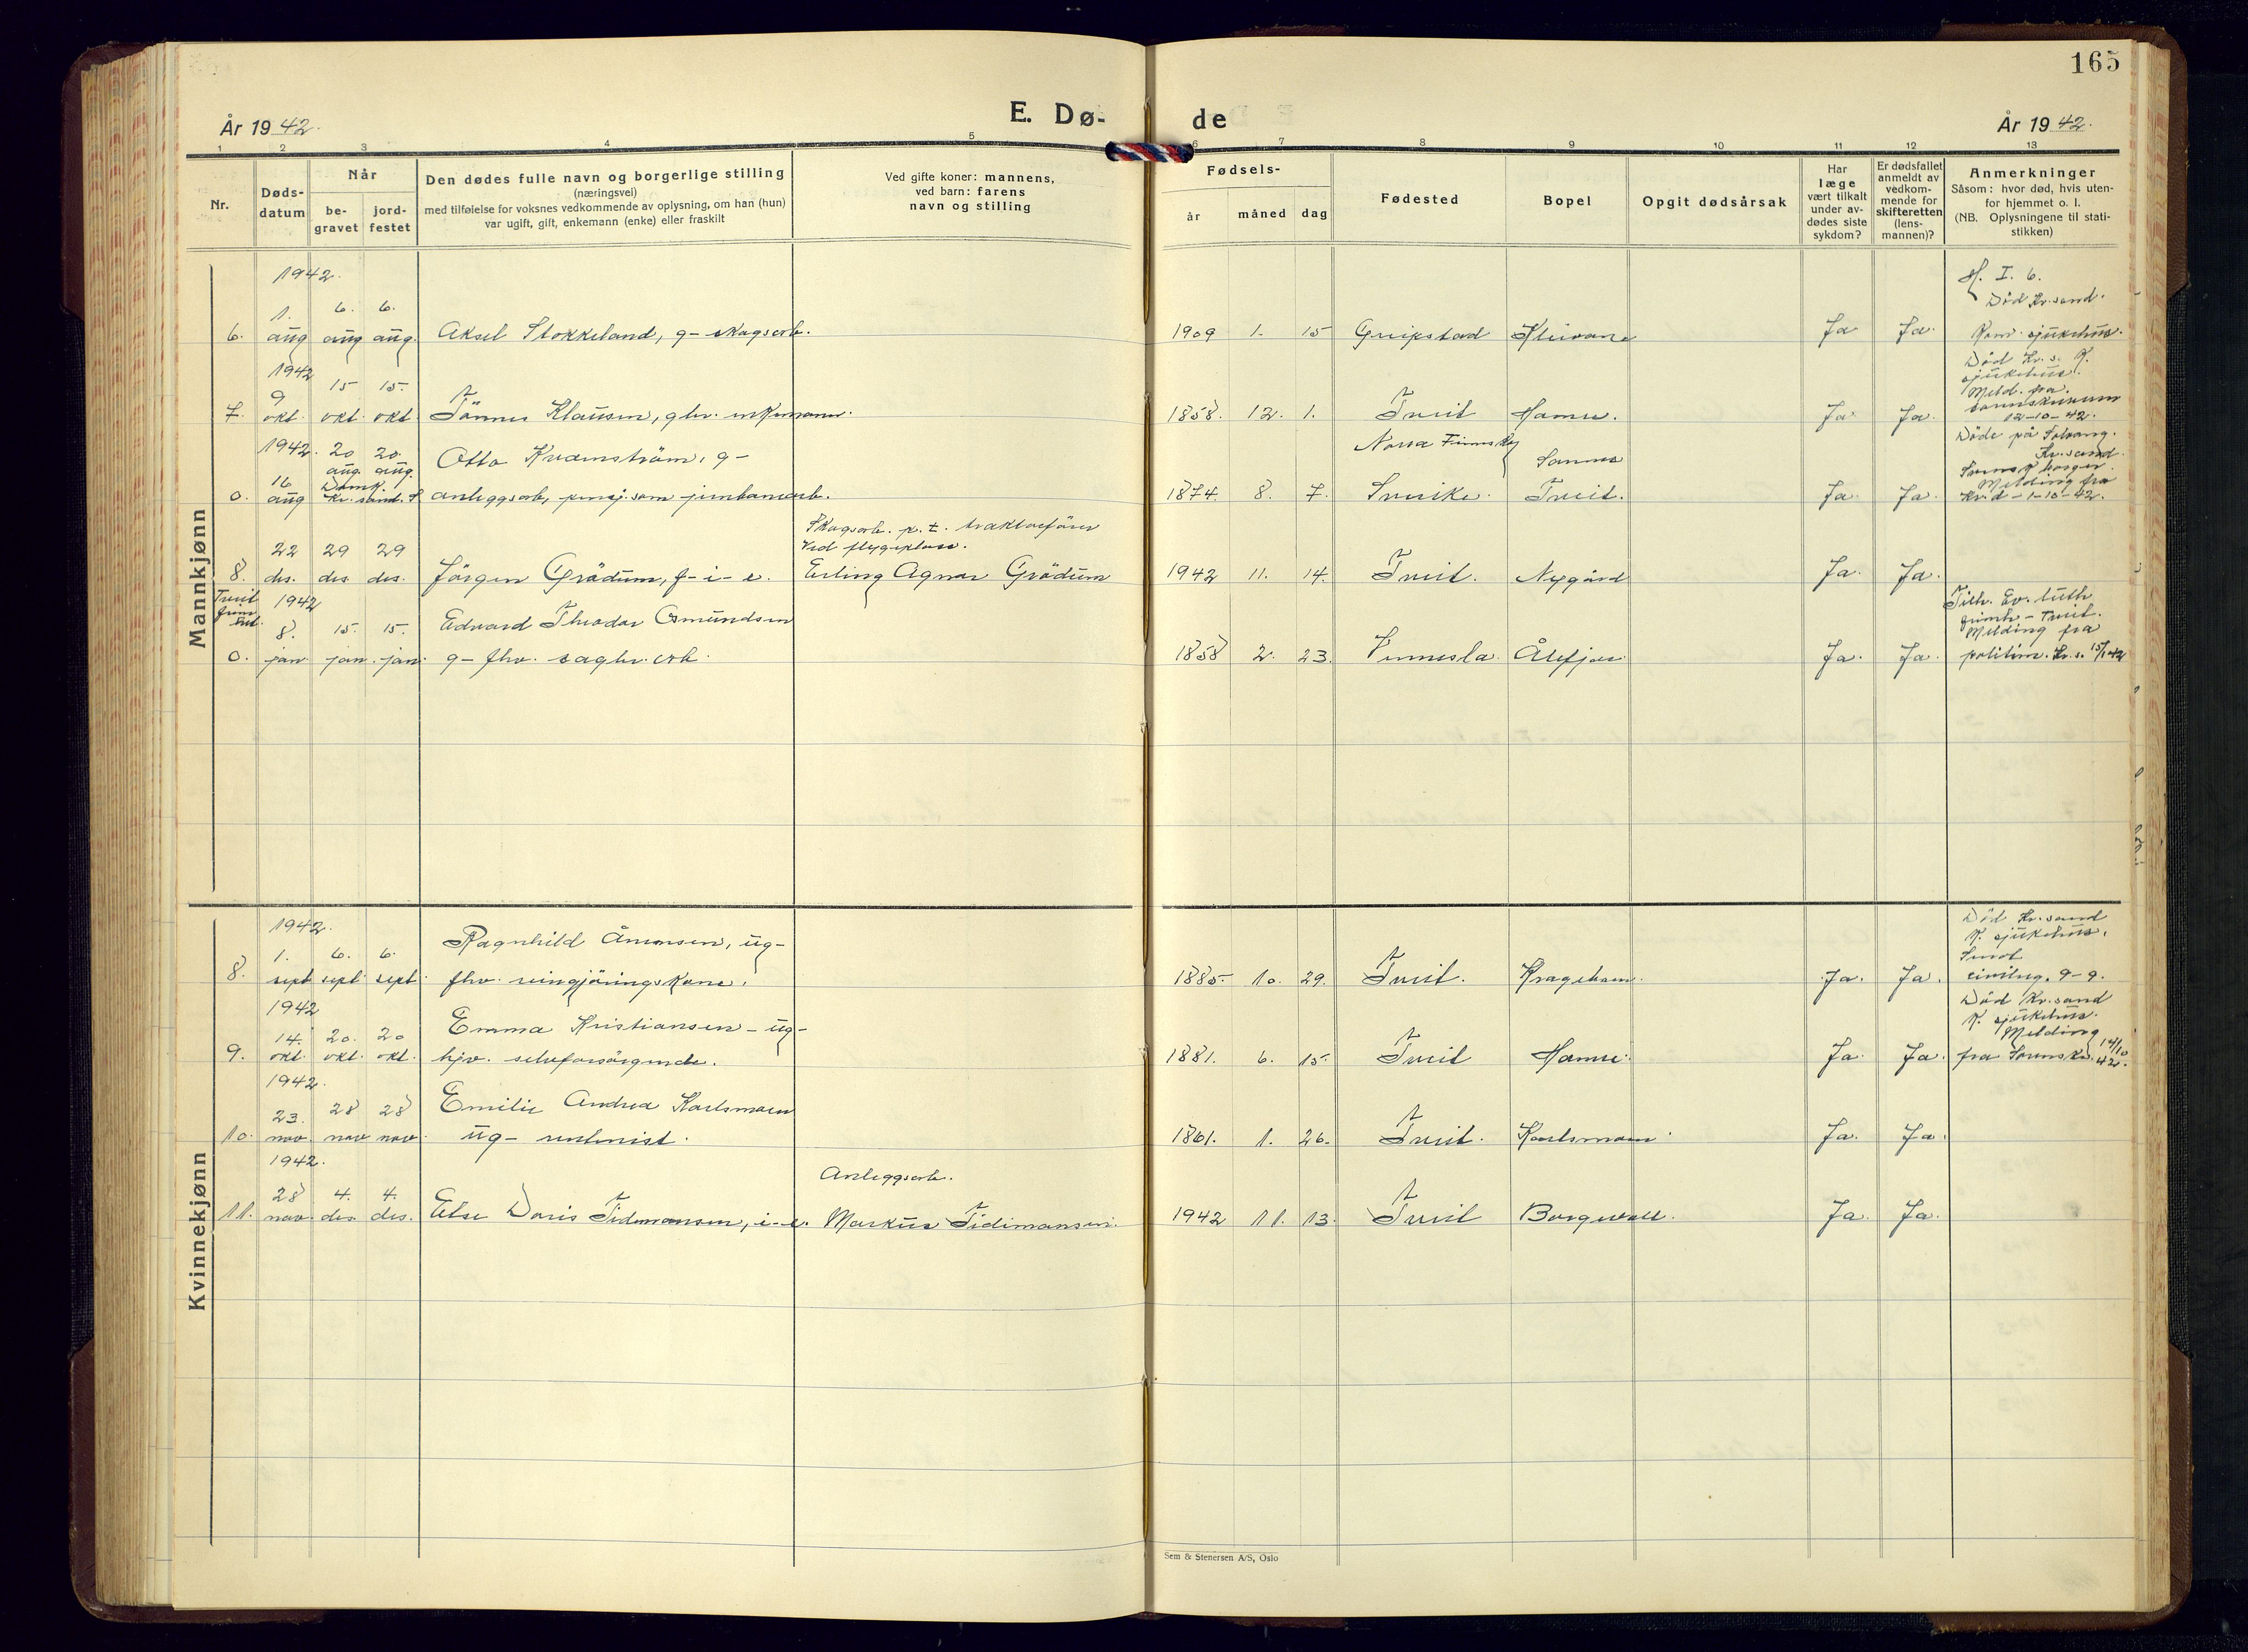 165
År 1942.
E. Dø-
de
År 1942.
1 2 3 4 5 6 7 8 9 10 11 12 13
Nr.
Døds-
datum
Når
be-
gravet
jord-
festet
Den dødes fulle navn og borgerlige stilling
(næringsvei)
med tilføielse for voksnes vedkommende av oplysning, om han (hun)
var ugift, gift, enkemann (enke) eller fraskilt
Ved gifte koner: mannens,
ved barn: farens
navn og stilling
Fødsels-
år
måned
dag
Fødested
Bopel
Opgit dødsårsak
Har
læge
vært tilkalt
under av-
dødes siste
sykdom?
Er dødsfallet
anmeldt av
vedkom-
mende for
skifteretten
(lens-
mannen)?
Anmerkninger
Såsom: hvor død, hvis uten-
for hjemmet o. l.
(NB. Oplysningene til stati-
stikken)
Mannkjønn
1942.
I. 6.
Död Kr.sand.
1. 6. 6.
6. aug aug aug. Aksel Stokkeland, g- skogsarb. 1909 1. 15 Greipstad Kleivane Ja Ja. Kom. sjukehus.
1942
Död Kr.s. K.
sjukehus.
Meld. fra
9 15 15.
7. okt. okt. okt. Tönnes Klausen, gbr. enkemann. 1858. 12. 1. Tveit Hamre. Ja Ja 12-10-42.
1942. 20 20.
aug. aug. Otto Kvarnström, g-
Norra Finnskog
Sannes
Döde på Solvang.
Kr.sand.
Svensk borger.
Melding fra
16 Domk.
0. aug Kr.sand.S anleggsarb, pensj. som jernbanearb. 1874. 8. 7. Sverike. Tveit. Ja Ja Kr.d-1-10-42.
Skogsarb. p.t. traktorförer
ved flygeplass.
22 29 29
8. des. des des. Jörgen Grödum, f-i-e. Erling Agnar Grödum 1942 11. 14. Tveit. Nygård Ja. Ja.
Tveit
frim.
1942
Tilh. Ev. luth
frimh- Tveit.
Melding fra
8. 15. 15. Edvard Theodor Osmundsen
0. jan jan. jan. g- fhv. sagbr. arb. 1858 2. 23. Vennesla. Ålefjær Ja. Ja. politim. Kr.s. 15/1 42
Kvinnekjønn
1942.
Död Kr.sand
K. sjukehus.
1. 6. 6. Ragnhild Ånonsen, ug-
8. sept sept sept. fhv. reingjöringskone. 1885 10. 29. Tveit. Kragebom. Ja. Ja. civilreg. 9-9.
1942
Död Kr.sand
K. sjukehus.
Melding
14. 20. 20 Emma Kristiansen - ug-
9. okt. okt. okt. hjv. selvforsörgende. 1881. 6. 15. Tveit Hamre. Ja Ja. fra Sorensk. 14/10 42.
1942.
23. 28 28 Emilie Andrea Karlsmoen
10. nov. nov nov. ug- rentenist. 1861. 1. 26. Tveit. Karlsmoen. Ja. Ja.
1942.
Anleggsarb.
28 4. 4.
11. nov. des des. Else Doris Tidemansen, i-e. Markus Tidimansen. 1942 11. 13. Tveit Borgevoll. Ja. Ja.
Sem & Stenersen A/S, Oslo